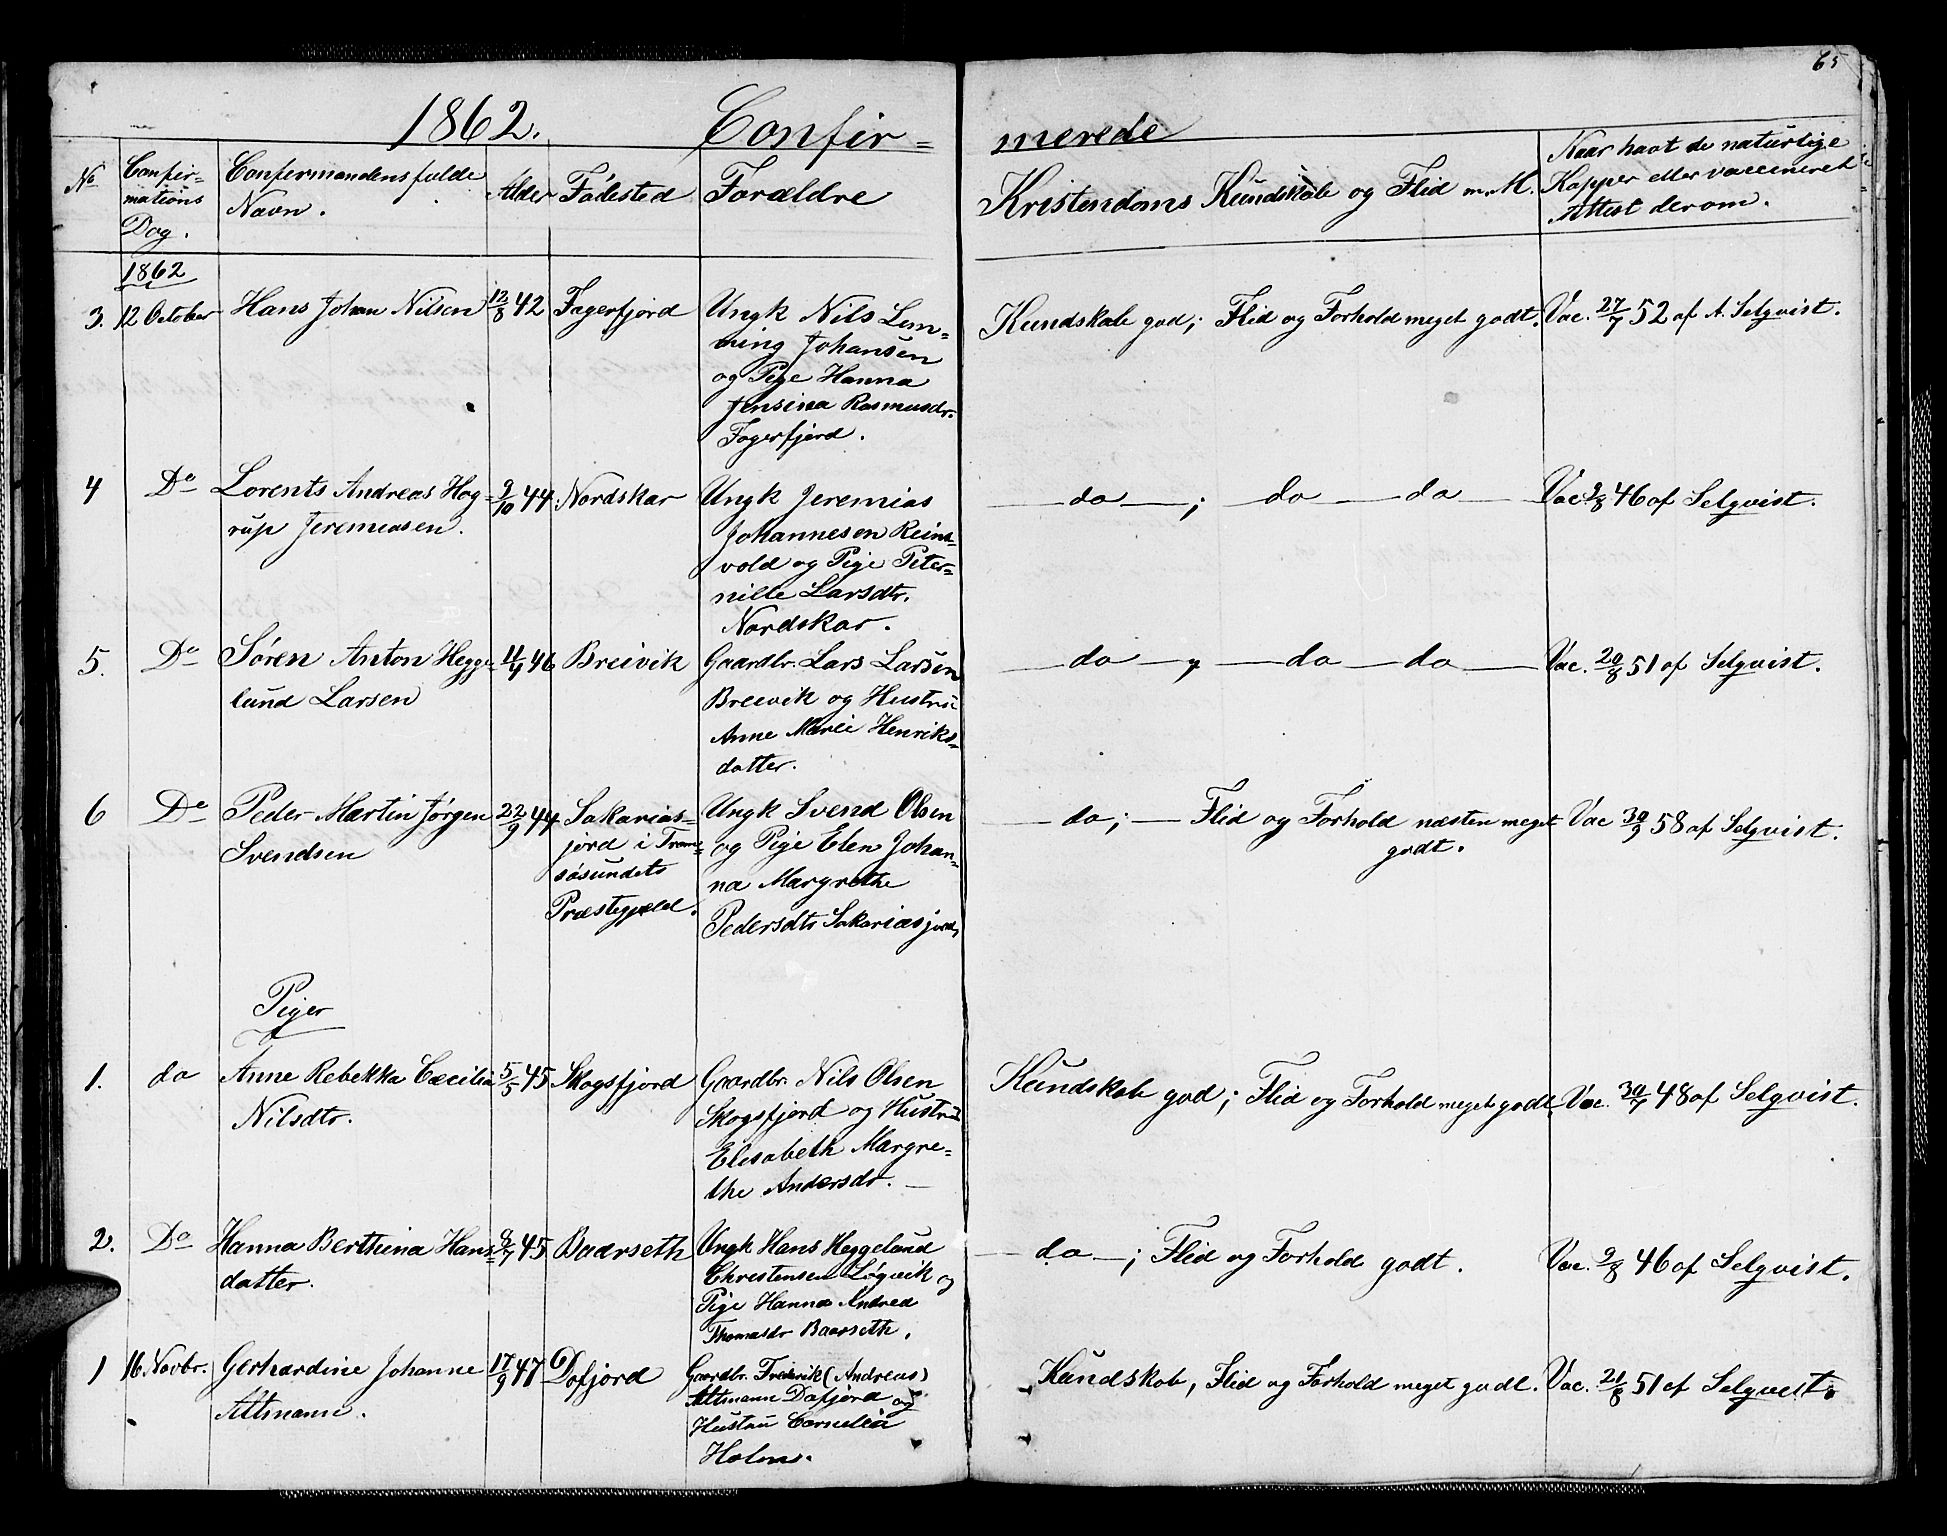 65
1862. Confir=
merede
No
Confir=
mations
Dag.
Confermandens fulde
Navn.
Alder
Födested
Forældre
Kristendoms Kundskab og Flid m. M.
Naar havt de naturlige
Kopper eller vaccineret
Attest derom.
1862
3. 12 October Hans Johan Nilsen 12/8 42 Fagerfjord Ungk Nils Lem=
ming Johansen
og Pige Hanna
Jensina Rasmusdr.
Fagerfjord.
Kundskab god; Flid og Forhold meget godt. Vac. 27/7 52 af A. Selqvist.
4 Do Lorents Andreas Hog=
rup Jeremiasen.
9/10 44 Nordskar Ungk Jeremias
Johannesen Reins=
vold og Pige Peter=
nille Larsdtr.
Nordskar.
do ; do do Vac 2/8 46 af Selqvist.
5. Do Sören Anton Hegge=
lund Larsen
11/9 46 Breivik Gaardbr. Lars Larsen
Breivik og Hustru
Anne Marie Henriks=
datter.
do do do Vac. 20/8 51 af Selqvist.
6 Do Peder Martin Jørgen
Svendsen
22/9 44 Sakarias=
jord i Trom=
søsundets
Præstegjæld.
Ungk Svend Olsen
og Pige Elen Johan=
na Margrethe
Pedersdtr Sakariasjord,
do; Flid og Forhold næsten meget
godt.
Vac 30/9 58 af Selqvist.
Piger
1. do Anne Rebekka Cæcilia
Nilsdtr.
5/5 45 Skogsfjord Gaardbr. Nils Olsen
Skogsfjord og Hustru
Elisabeth Margre=
the Andersdr.
Kundskab god; Flid og Forhold meget godt. Vac. 30/7 48 af Selqvist.
2. Do Hanna Berthina Hans=
datter.
8/7 45 Baarseth Ungk Hans Heggelund
Christensen Løgvik og
Pige Hanna Andrea
Thomasdr Baarseth.
do ; Flid og Forhold godt. Vac. 9/8 46 af Selqvist.
1 16 Novbr. Gerhardine Johanne
Altmann.
17/9 47 Dafjord Gaardbr. Frederik (Andreas)
Altmann Dafjord og
Hustru Cornelia
Holms.
Kundskab, Flid og Forhold meget godt. Vac. 21/8 51 af Selqvist.